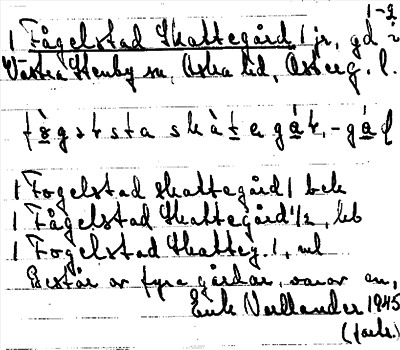 1-2
1 Fågelstad Skattegård 1 jr, gd i
Västra Stenby sn, Aska hd, Österg. l.
1 Fogelstad skattegård 1 bek
1 Fågelstad Skattegård 1/2, kb
1 Fogelstad Skatteg. 1, ml
Består av fyra gårdar, varav en,
Erik Nellander 1945